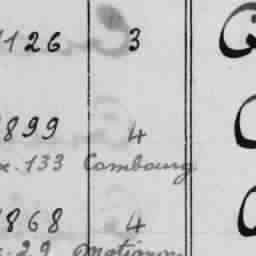 1126 3
1899 4
x. 133 Combourg
1868 4
x. 29